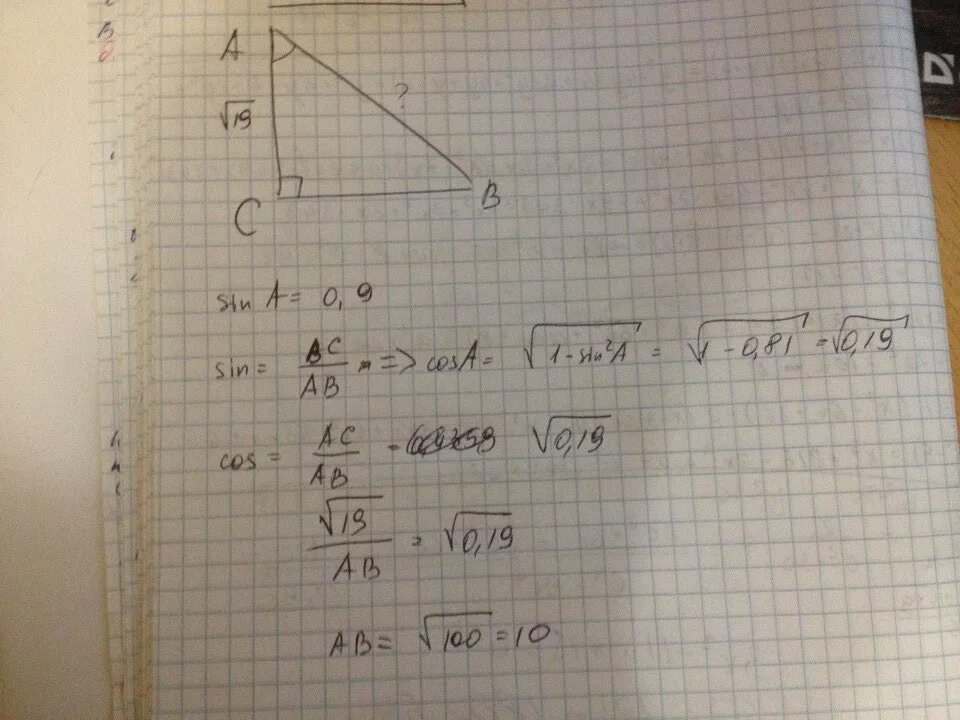 A
√19
?
C
B
sin A = 0,9
sin = BC/AB => cosA = √(1-sin²A) = √(1-0,81) = √0,19
cos = AC/AB = √0,19
√19/AB = √0,19
AB = √100 = 10